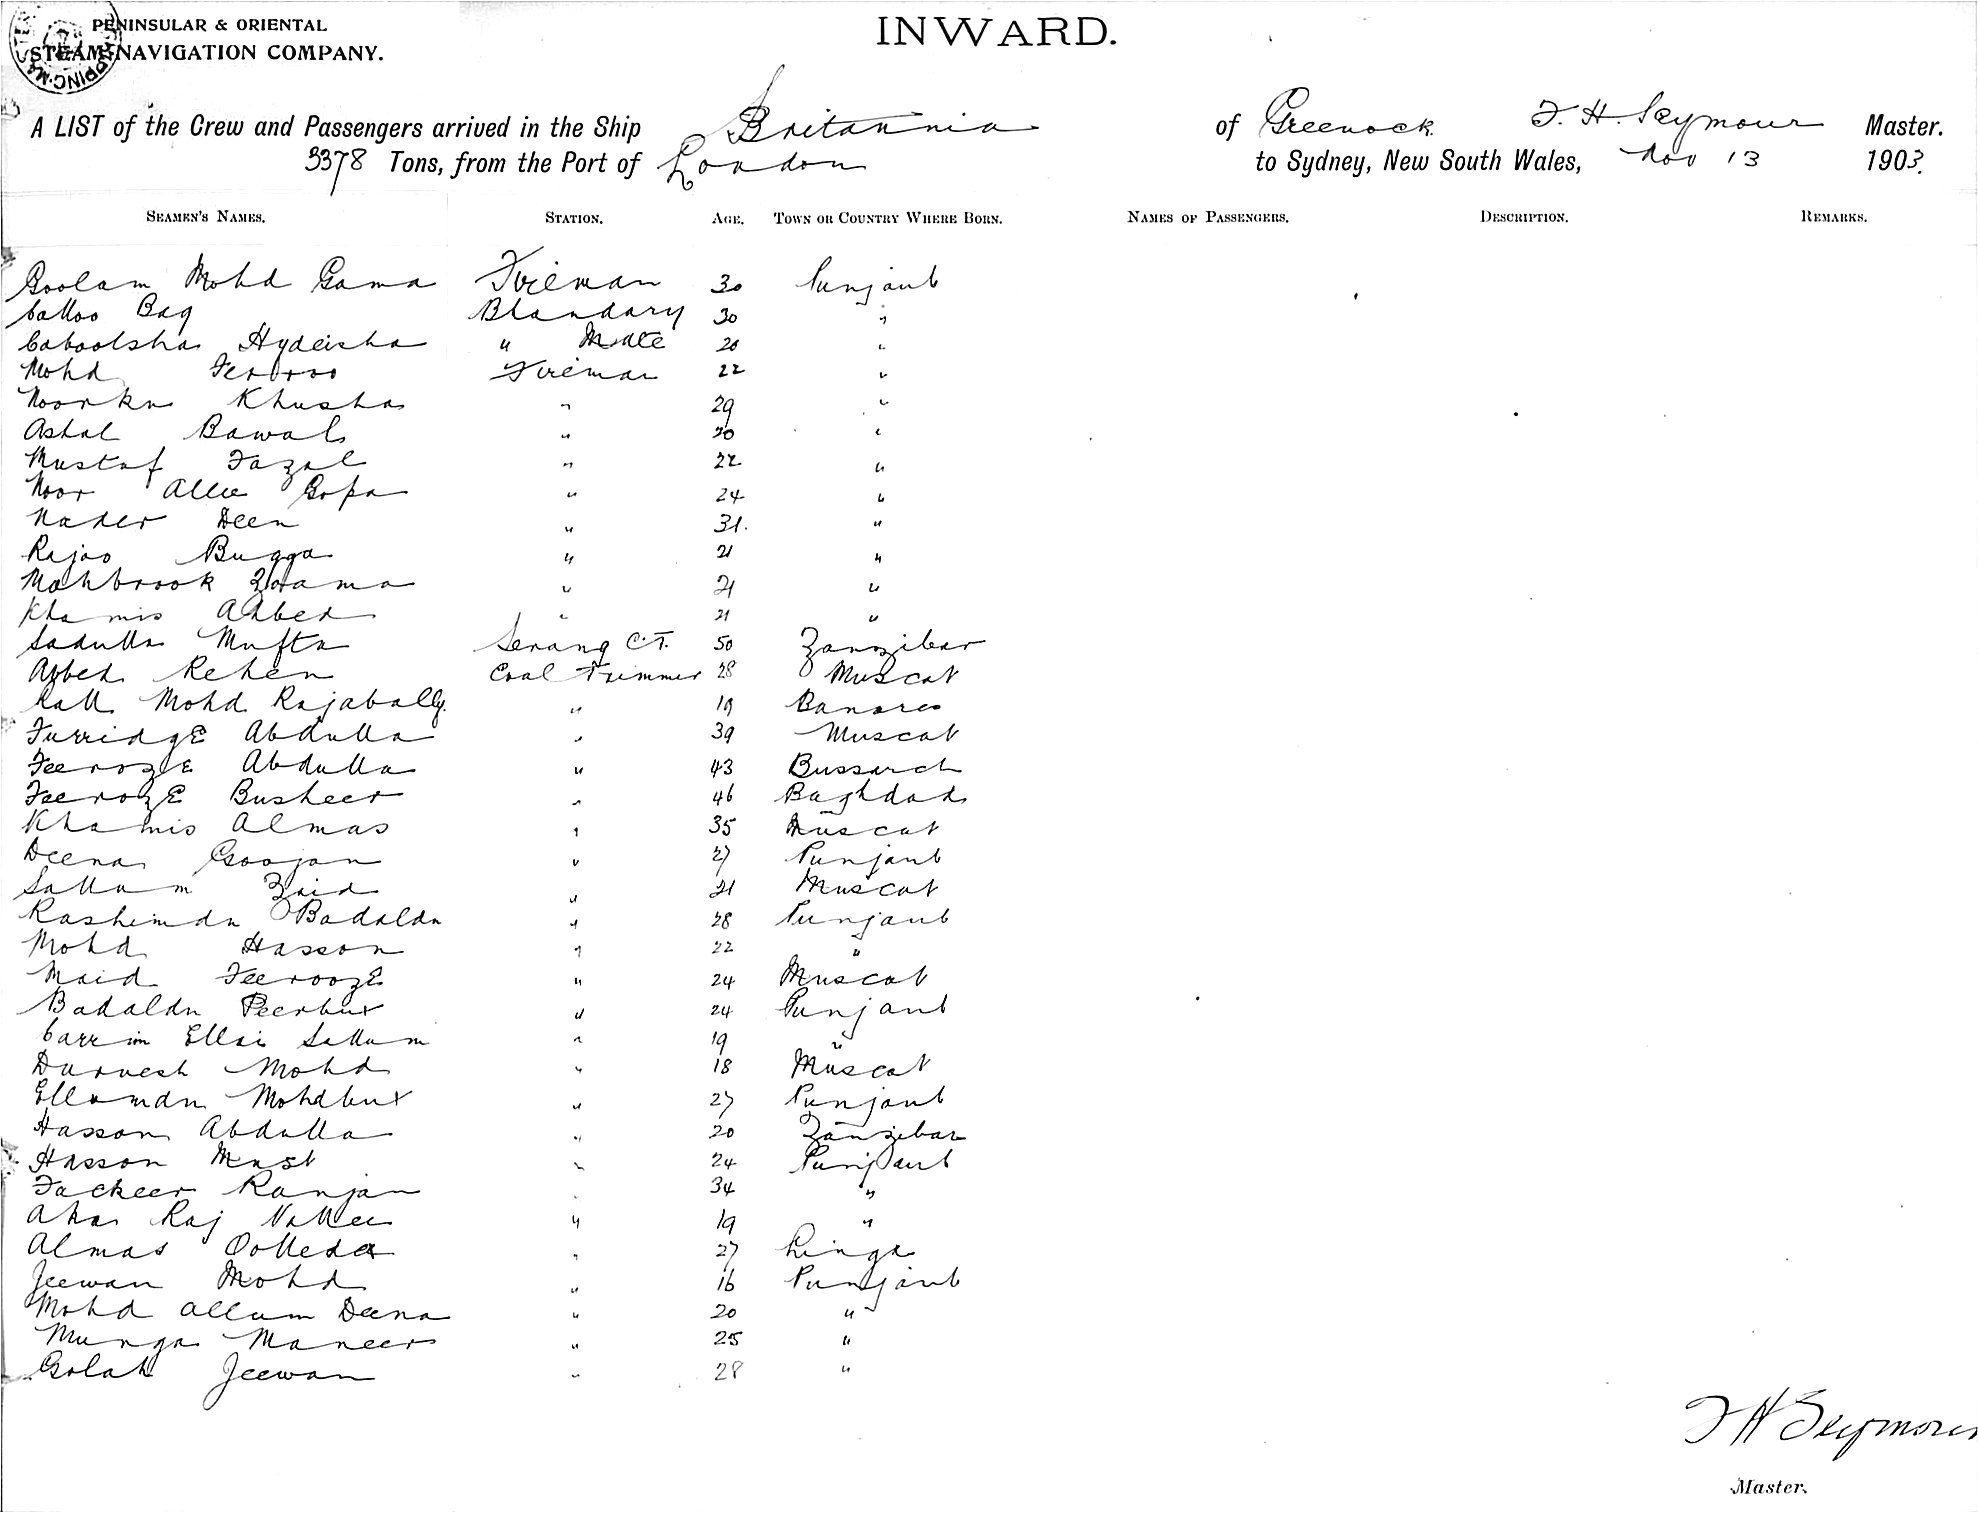 PENINSULAR & ORIENTAL
STEAM NAVIGATION COMPANY.
INWARD.
A LIST of the Crew and Passengers arrived in the Ship Britannia of Greenock F. H. Seymour Master.
3378 Tons, from the Port of London to Sydney, New South Wales, Nov 13 1903.
SEAMEN'S NAMES. STATION. AGE. TOWN OR COUNTRY WHERE BORN. NAMES OF PASSENGERS. DESCRIPTION. REMARKS.
Goolam Mohd Gama Fireman 30 Punjaub
Calloo Bag Bhandary 30 "
Caboolsha Hydeisha " Mate 20 "
Mohd Fireman 22 "
Noorkn Khusha " 29 "
Bawal " 30 "
Mustaf Fazal " 22 "
Noor Allie Gopa " 24 "
Nader Deen " 31. "
Rajoo Bugga " 21 "
Mahbrook " 21 "
Khamis " 21 "
Sadulla Mufta Serang C.T. 50 Zanzibar
Rehen Coal Trimmer 28 Muscat
Mohd Rajabally. " 19 Banares
Furridge Abdulla " 39 Muscat
Feeroze Abdulla " 43 Bussarah
Feeroze Busheer " 46 Baghdad
Khamis Almas " 35 Muscat
Deena Goojan " 27 Punjaub
Sallum Zaid " 21 Muscat
Rashimdn Badaldn " 28 Punjaub
Mohd Hasson " 22 "
Maid Feerooze " 24 Muscat
Badaldn Peerbux " 24 Punjaub
Carrim Ellai Sallum " 19 "
Durvesh Mohd " 18 Muscat
Ellamdn Mohdbux " 27 Punjaub
Hasson Abdulla " 20 Zanzibar
Hasson Must " 24 Punjaub
Fackeer Ranjan " 34 "
Raj Vallee " 19 "
Almas " 27 Linga
Jeewan Mohd " 16 Punjaub
Mohd Allum Deena " 20 "
Munga Maneer " 25 "
Golab Jeewan " 28 "
F H Seymour
Master.